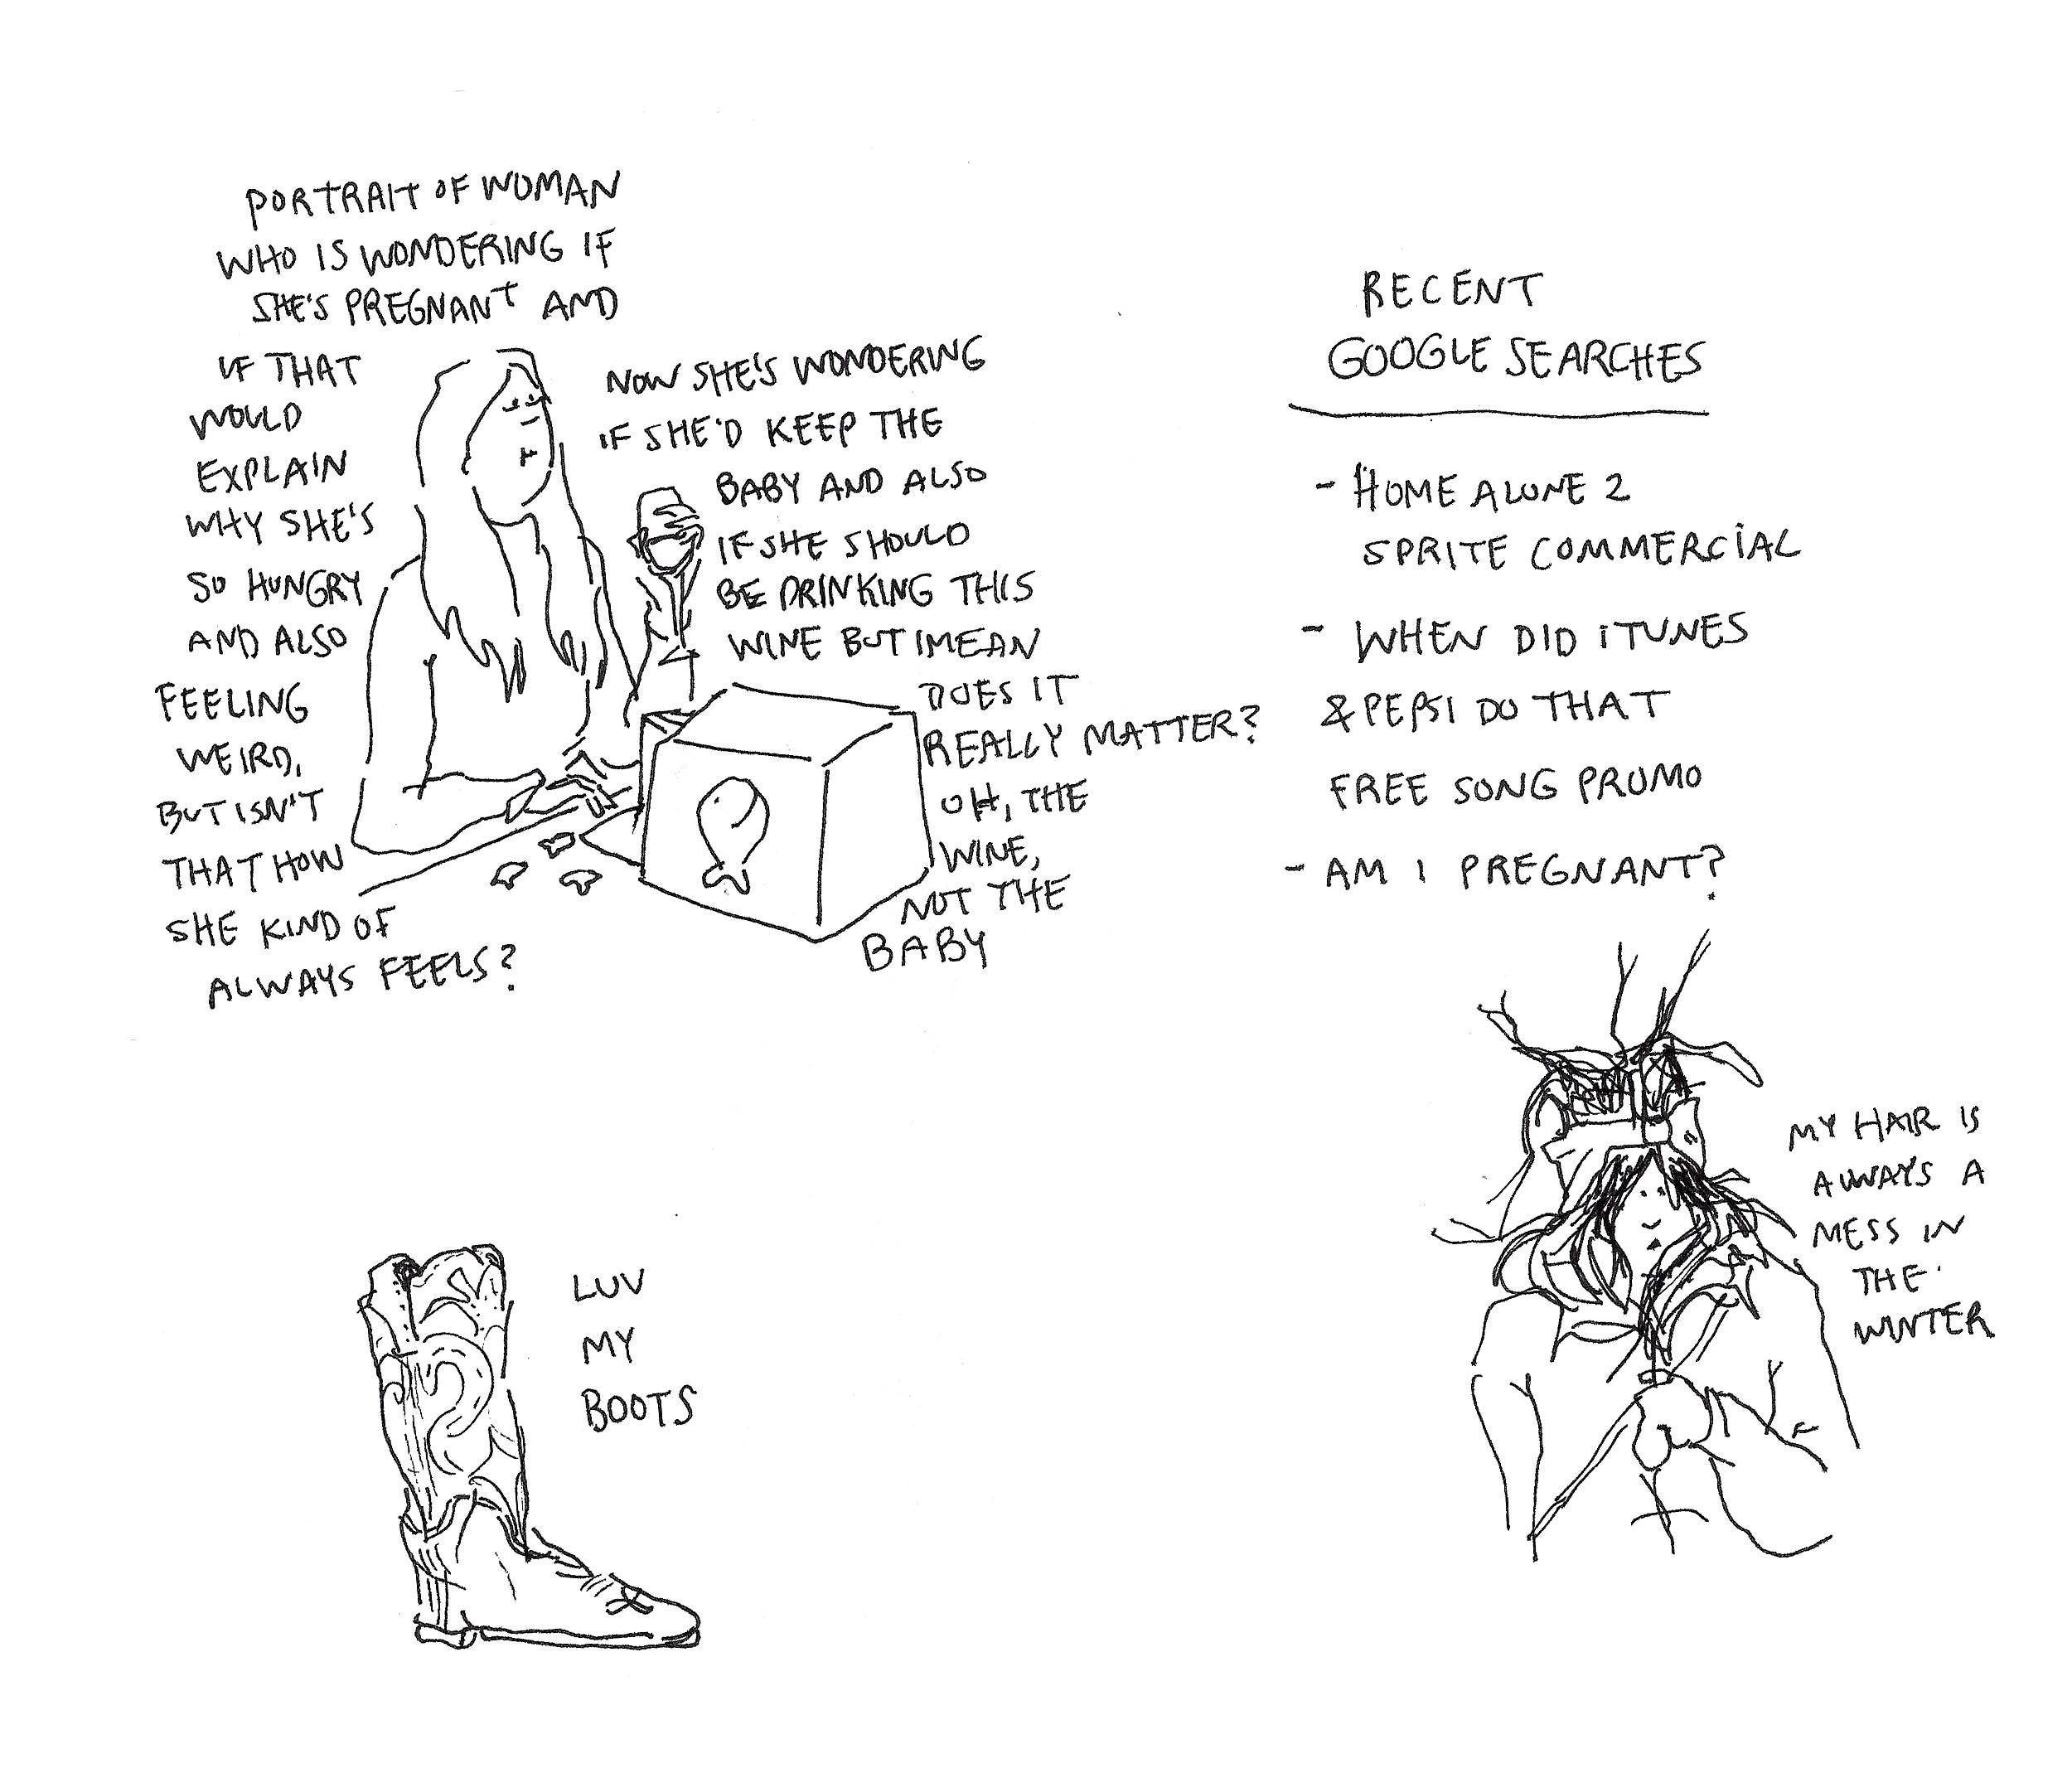 PORTRAIT OF WOMAN
WHO IS WONDERING IF
SHE'S PREGNANT AND
IF THAT
WOULD
EXPLAIN
WHY SHE'S
SO HUNGRY
AND ALSO
FEELING
WEIRD,
BUT ISN'T
THAT HOW
SHE KIND OF
ALWAYS FEELS?
NOW SHE'S WONDERING
IF SHE'D KEEP THE
BABY AND ALSO
IF SHE SHOULD
BE DRINKING THIS
WINE BUT I MEAN
DOES IT
REALLY MATTER?
OH, THE
WINE,
NOT THE
BABY
RECENT
GOOGLE SEARCHES
- HOME ALONE 2
SPRITE COMMERCIAL
- WHEN DID ITUNES
& PEPSI DO THAT
FREE SONG PROMO
- AM I PREGNANT?
LUV
MY
BOOTS
MY HAIR IS
ALWAYS A
MESS IN
THE
WINTER